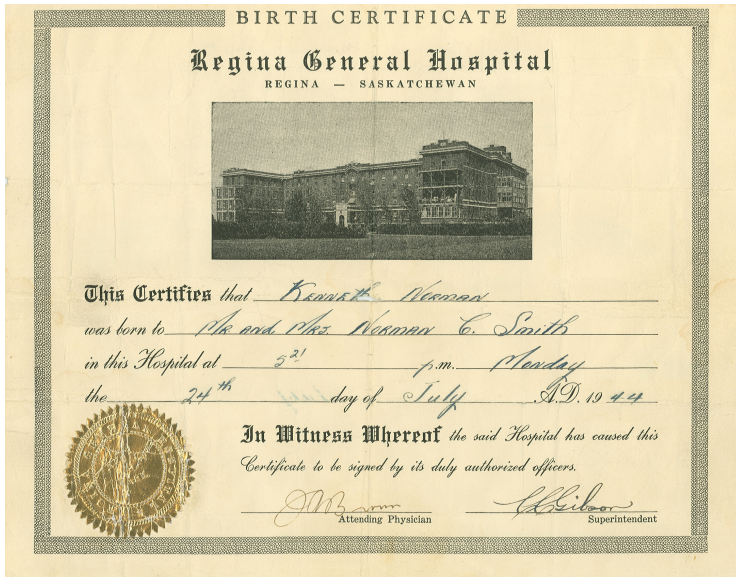 BIRTH CERTIFICATE
Regina General Hospital
REGINA — SASKATCHEWAN
This Certifies that Kenneth Norman
was born to Mr and Mrs. Norman C. Smith
in this Hospital at 5 21 p.m. Monday
the 24th day of July A.D. 1944
In Witness Whereof the said Hospital has caused this
Certificate to be signed by its duly authorized officers.
Gibson
Attending Physician Superintendent